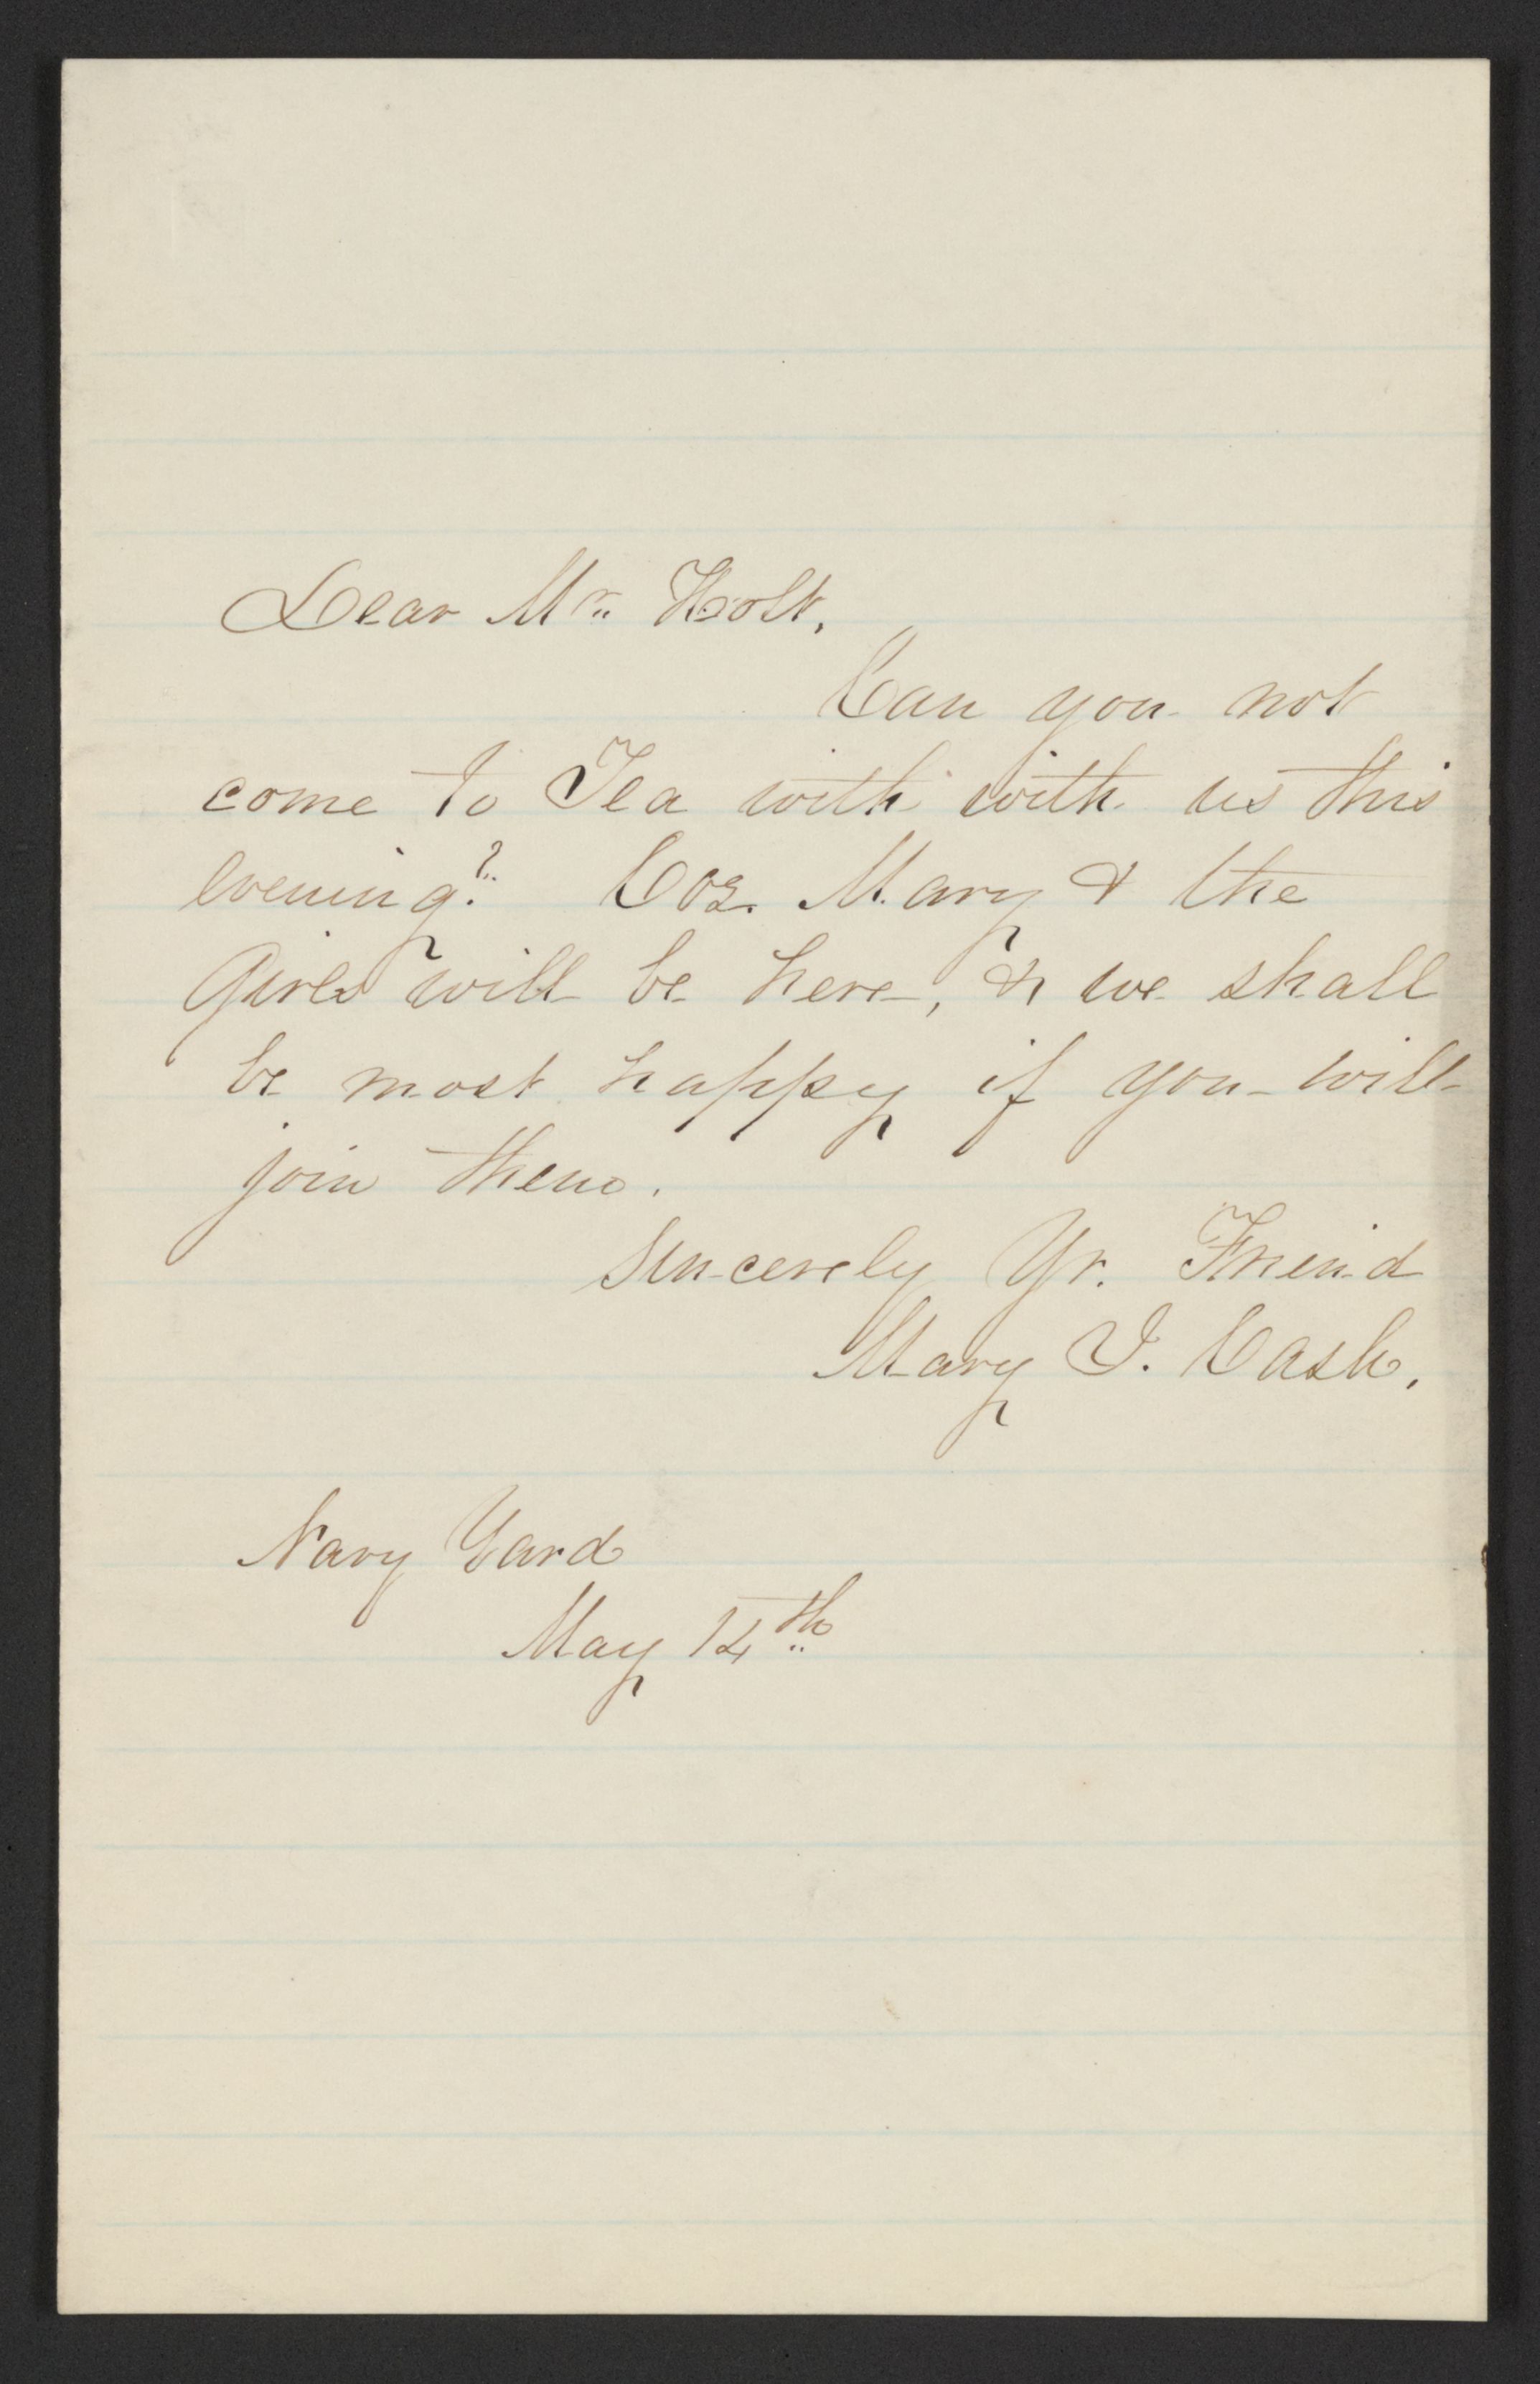 Dear Mr. Holt,
Can you not
come to Tea with with us this
evening? Coz. Mary & the
Girls will be here, & we shall
be most happy if you will
join them.
Sincerely Yr. Friend
Mary I. Cash.
Navy Yard
May 14th